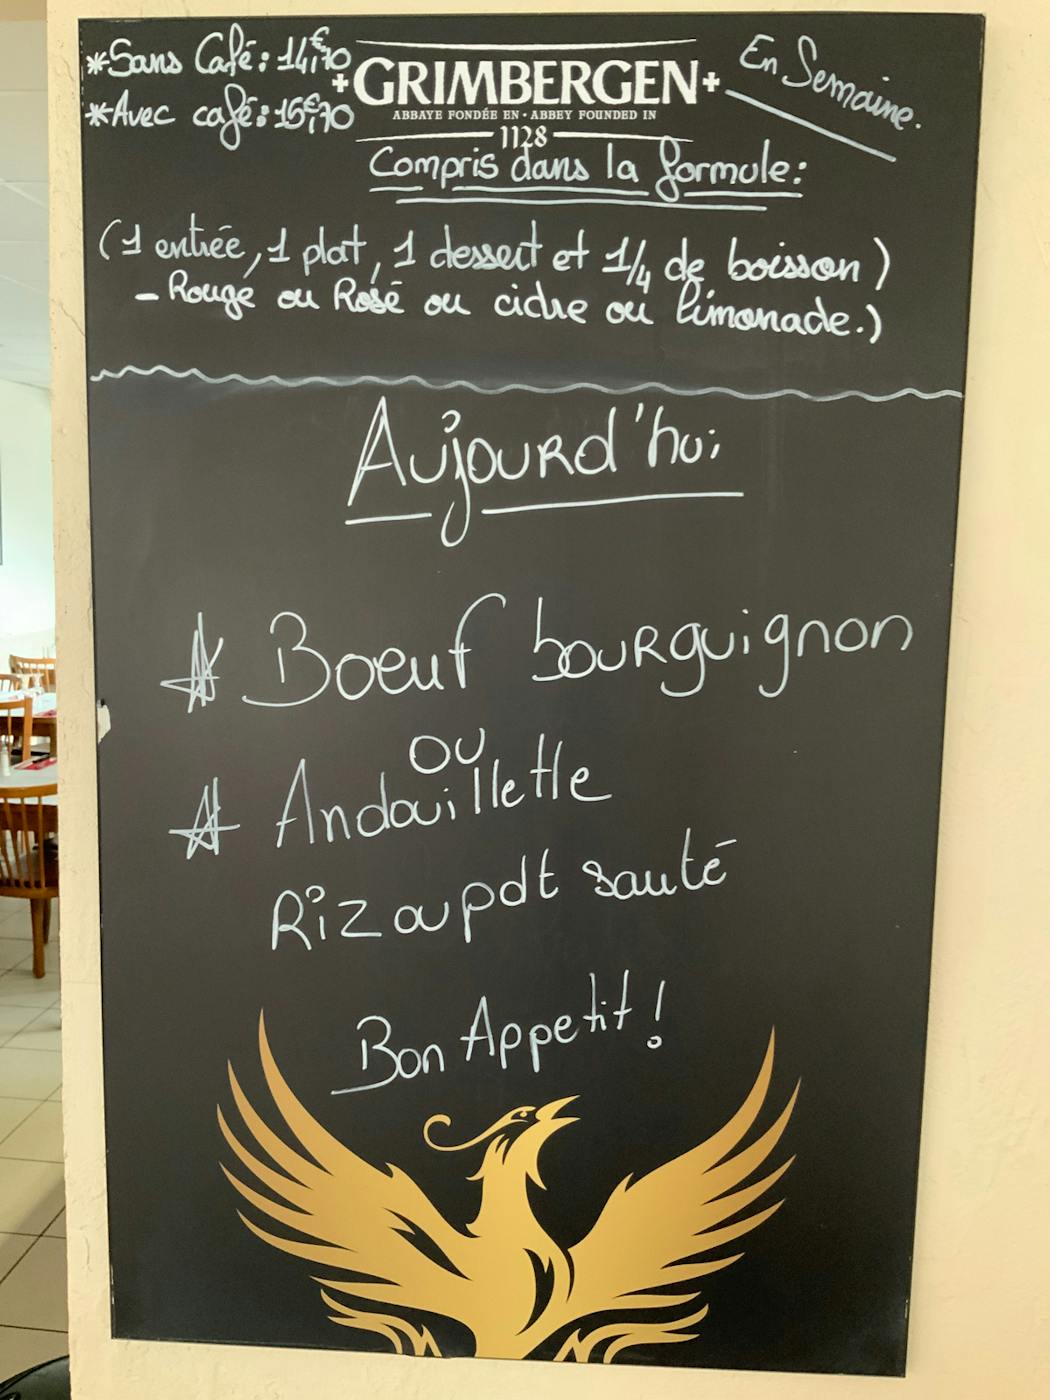 *Sans Café: 14€,70
*Avec café: 15€,70
+GRIMBERGEN+
ABBAYE FONDÉE EN • ABBEY FOUNDED IN
1128
En Semaine.
Compris dans la formule:
(1 entrée, 1 plat, 1 dessert et 1/4 de boisson)
- Rouge ou Rosé ou cidre ou limonade.)
Aujourd'hui
* Boeuf bourguignon
ou
* Andouillette
Riz ou pdt sauté
Bon Appetit!